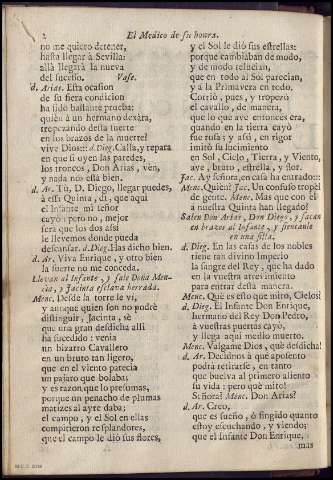 2
El Medico de su honra.
no me quiero detener,
hasta llegar à Sevilla:
allà llegarà la nueva
del sucesso. Vase.
d. Arias. Esta ocasion
de su fiera condicion
ha sido bastante prueba:
quien à un hermano dexàra,
tropezando desta suerte
en los brazos de la muerte?
vive Dios:: d. Dieg. Calla, y repara
en que si oyen las paredes,
los troncos, Don Arias, vèn,
y nada nos està bien.
d. Ar. Tù, D. Diego, llegar puedes,
à essa Quinta, di, que aqui
el Infante mi señor
cayò: pero no, mejor
serà que los dos assi
le llevemos donde pueda
descansar. d. Dieg. Has dicho bien.
d. Ar. Viva Enrique, y otro bien
la suerte no me conceda.
Llevan al Infante, y sale Doña Men-
cia, y Jacinta esclava herrada.
Menc. Desde la torre le vi,
y aunque quien son no podrè
distinguir, Jacinta, sè
que una gran desdicha allì
ha sucedido: venia
un bizarro Cavallero
en un bruto tan ligero,
que en el viento parecia
un pajaro que bolaba;
y es razon que lo presumas,
porque un penacho de plumas
matizes al ayre daba;
el campo, y el Sol en ellas
compitieron resplandores,
que el campo le diò sus flores,
y el Sol le diò sus estrellas:
porque cambiaban de modo,
y de modo relucian,
que en todo al Sol parecian,
y à la Primavera en todo.
Corriò, pues, y tropezò
el cavallo, de manera,
que lo que ave entonces era,
quando en la tierra cayò
fue rosa; y assi, en rigor
imitò su lucimiento
en Sol, Cielo, Tierra, y Viento,
ave, bruto, estrella, y flor.
Jac. Ay señora, en casa ha entrado::
Menc. Quien? Jac. Un confuso tropèl
de gente. Menc. Mas que con èl
à nuestra Quinta han llegado?
Salen Don Arias, Don Diego, y sacan
en brazos al Infante, y sientanle
en una silla.
d. Dieg. En las casas de los nobles
tiene tan divino Imperio
la sangre del Rey, que ha dado
en la vuestra atrevimiento
para entrar desta manera.
Menc. Què es esto que miro, Cielos!
d. Dieg. El Infante Don Enrique,
hermano del Rey Don Pedro,
à vuestras puertas cayò,
y llega aqui medio muerto.
Menc. Valgame Dios, què desdicha!
d. Ar. Decidnos à què aposento
podrà retirarse, en tanto
que buelva al primero aliento
su vida; pero què miro!
Señora? Menc. Don Arias?
d. Ar. Creo,
que es sueño, ò fingido quanto
estoy escuchando, y viendo;
que el Infante Don Enrique,
mas